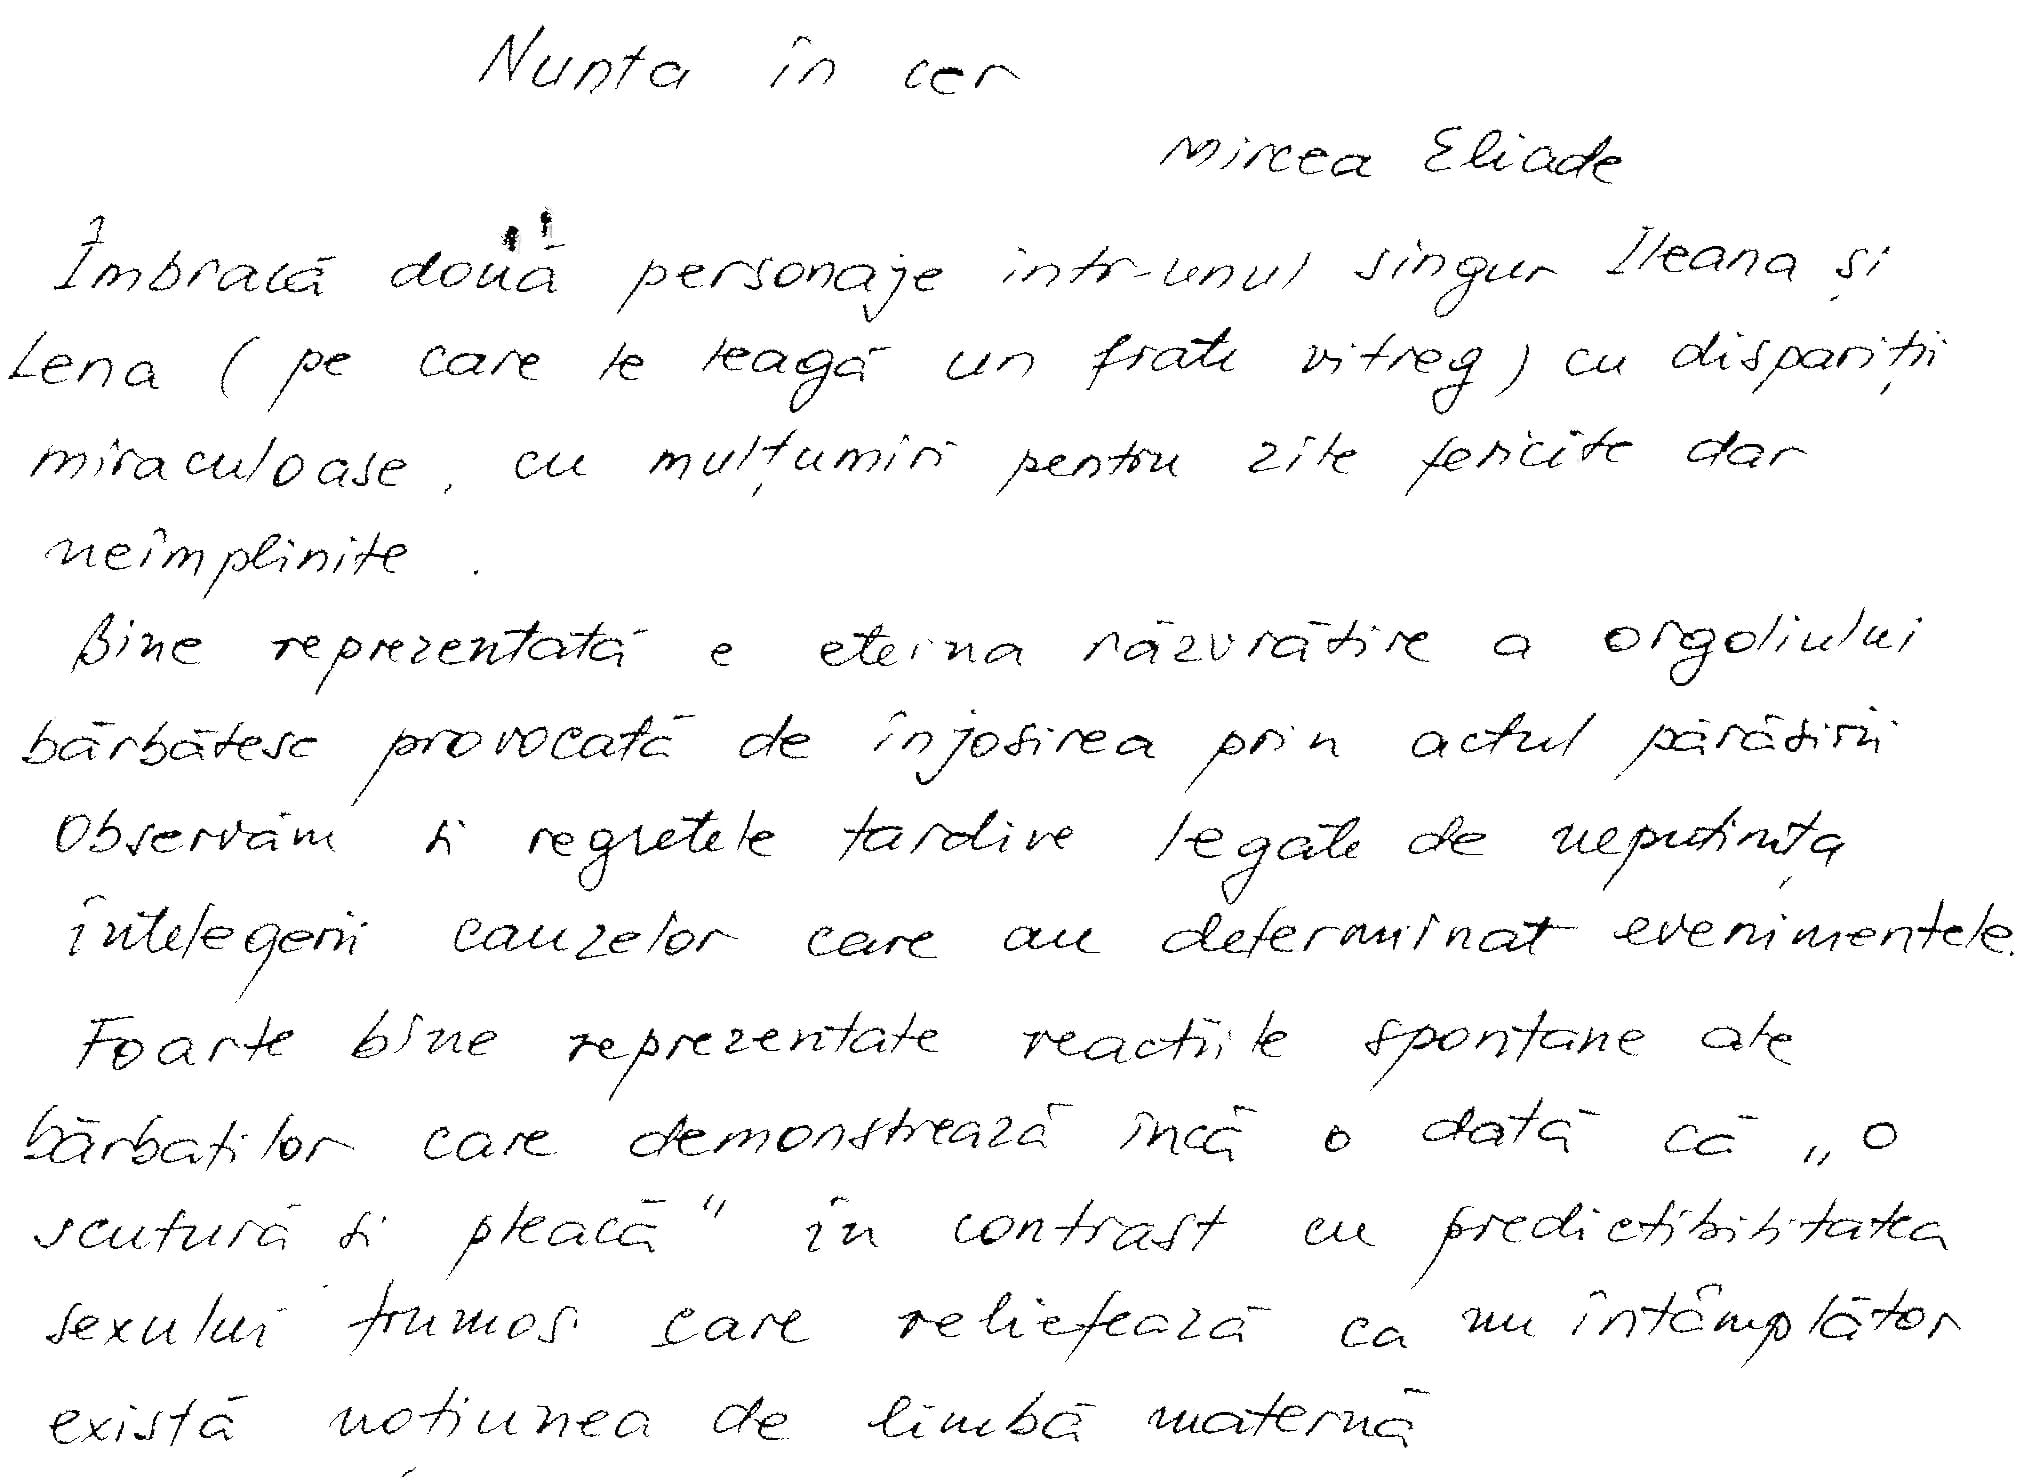 Nunta în cer
Mircea Eliade
Îmbracă două personaje intr-unul singur Ileana și
Lena (pe care le leagă un frate vitreg) cu dispariții
miraculoase, cu mulțumiri pentru zile fericite dar
neîmplinite.
Bine reprezentată e eterna răzvrătire a orgoliului
bărbătesc provocată de înjosirea prin actul părăsirii
Observăm si regretele tardive legate de neputința
întelegerii cauzelor care au determinat evenimentele.
Foarte bine reprezentate reactiile spontane ale
bărbaților care demonstrează încă o dată că „o
scutură si pleacă" în contrast cu predictibilitatea
sexului frumos care reliefează ca nu întâmplător
există noțiunea de limbă maternă